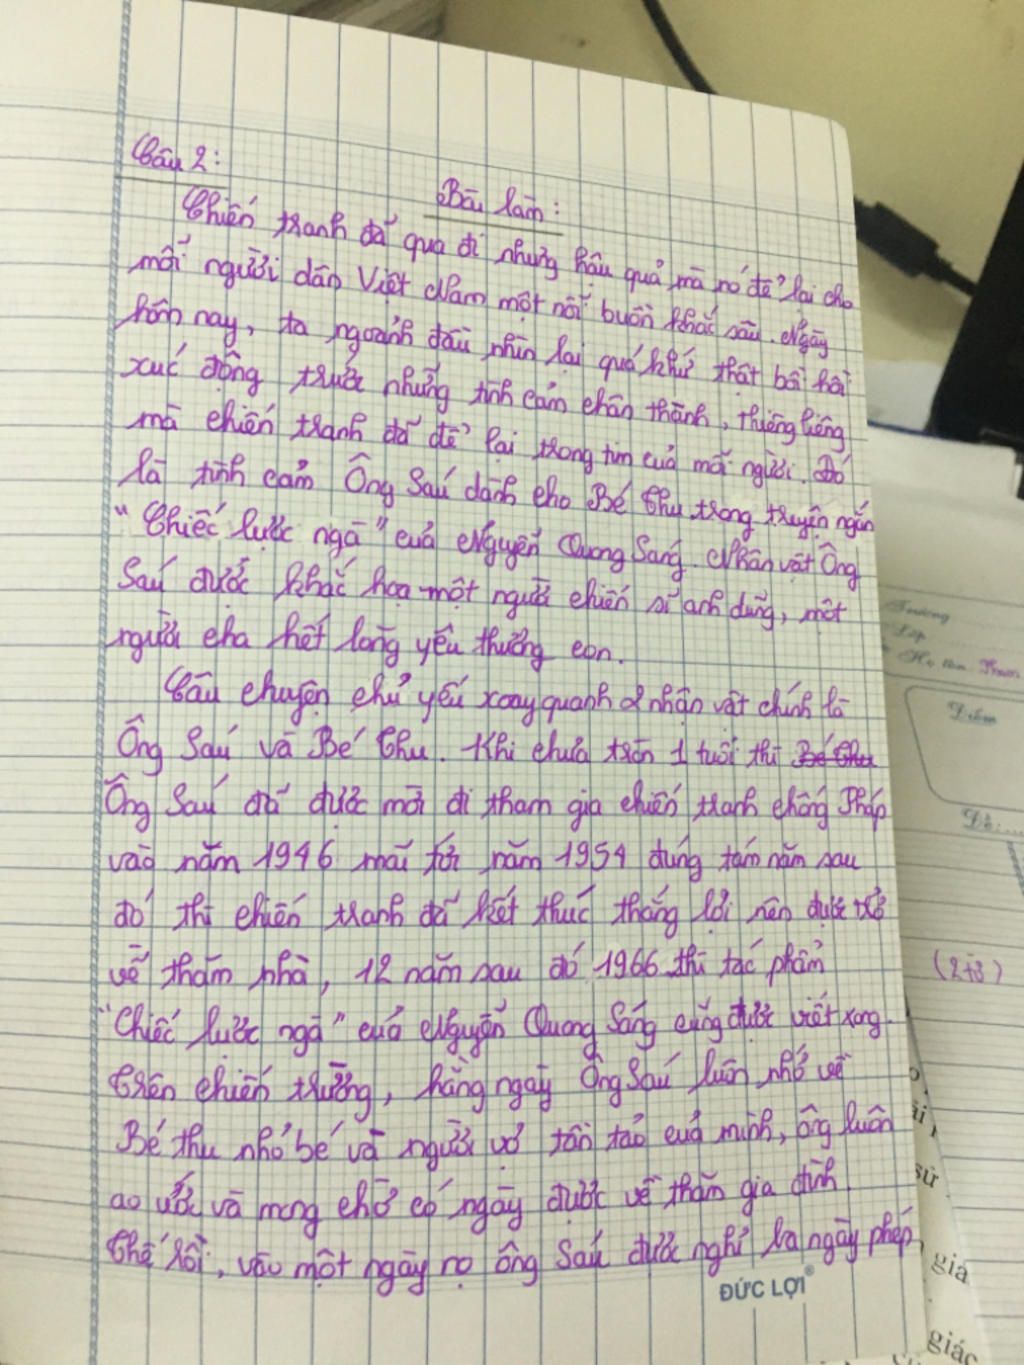 Câu 2:
Bài làm:
Chiến tranh đã qua đi nhưng hậu quả mà nó để lại cho
mỗi người dân Việt Nam một nỗi buồn khắc sâu. Ngày
hôm nay, ta ngoảnh đầu nhìn lại quá khứ thật bồi hồi
xúc động trước những tình cảm chân thành, thiêng liêng
mà chiến tranh đã để lại trong tim của mỗi người. Đó
là tình cảm Ông Sáu dành cho Bé Thu trong truyện ngắn
"Chiếc lược ngà" của Nguyễn Quang Sáng. Nhân vật Ông
Sáu được khắc họa một người chiến sĩ anh dũng, một
người cha hết lòng yêu thương con.
Câu chuyện chủ yếu xoay quanh 2 nhận vật chính là
Ông Sáu và Bé Thu. Khi chưa tròn 1 tuổi thì Bé Thu
Ông Sáu đã được mời đi tham gia chiến tranh chống Pháp
vào năm 1946 mãi tới năm 1954 đúng tám năm sau
đó thì chiến tranh đã kết thúc thắng lợi nên được trở
về thăm nhà, 12 năm sau đó 1966 thì tác phẩm
"Chiếc lược ngà" của Nguyễn Quang Sáng cũng được viết xong.
Trên chiến trường, hằng ngày Ông Sáu luôn nhớ về
Bé thu nhỏ bé và người vợ tần tảo của mình, ông luôn
ao ước và mong chờ có ngày được về thăm gia đình.
Thế rồi, vào một ngày nọ ông Sáu được nghỉ ba ngày phép
ĐỨC LỢI
Trường
Lớp
Họ tên
Điểm
Đề:...
(2+3)
sử
gia
giác